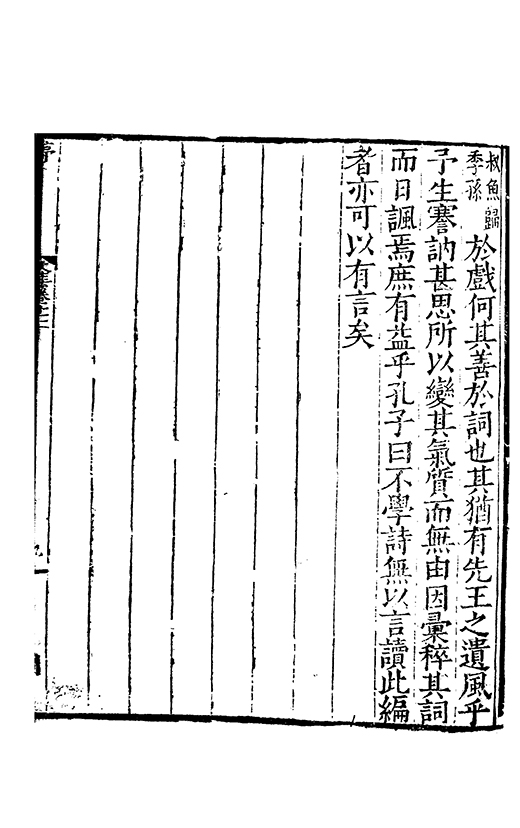 叔魚歸
季孫
於戲何其善於詞也其猶有先王之遺風乎
予生謇訥甚思所以變其氣質而無由因彙稡其詞
而日諷焉庶有益乎孔子曰不學詩無以言讀此編
者亦可以有言矣